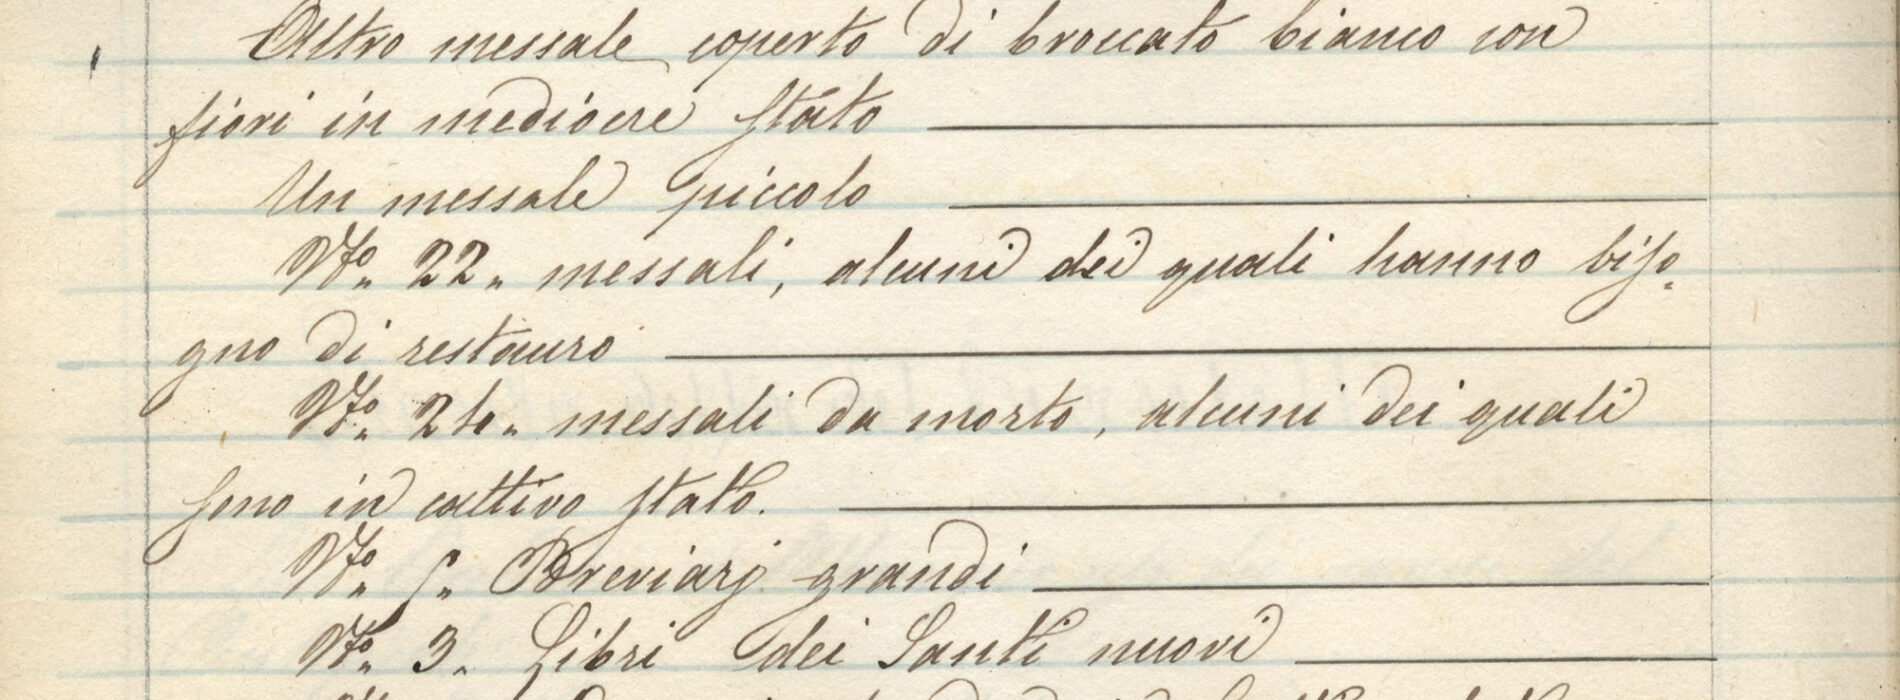 Altro messale coperto di broccato bianco con
fiori in mediocre stato
Un messale piccolo
No. 22. messali, alcuni dei quali hanno biso=
gno di restauro
No. 24. messali da morto, alcuni dei quali
sono in cattivo stato.
No. Breviarj grandi
No. 3. Libri dei Santi nuovi